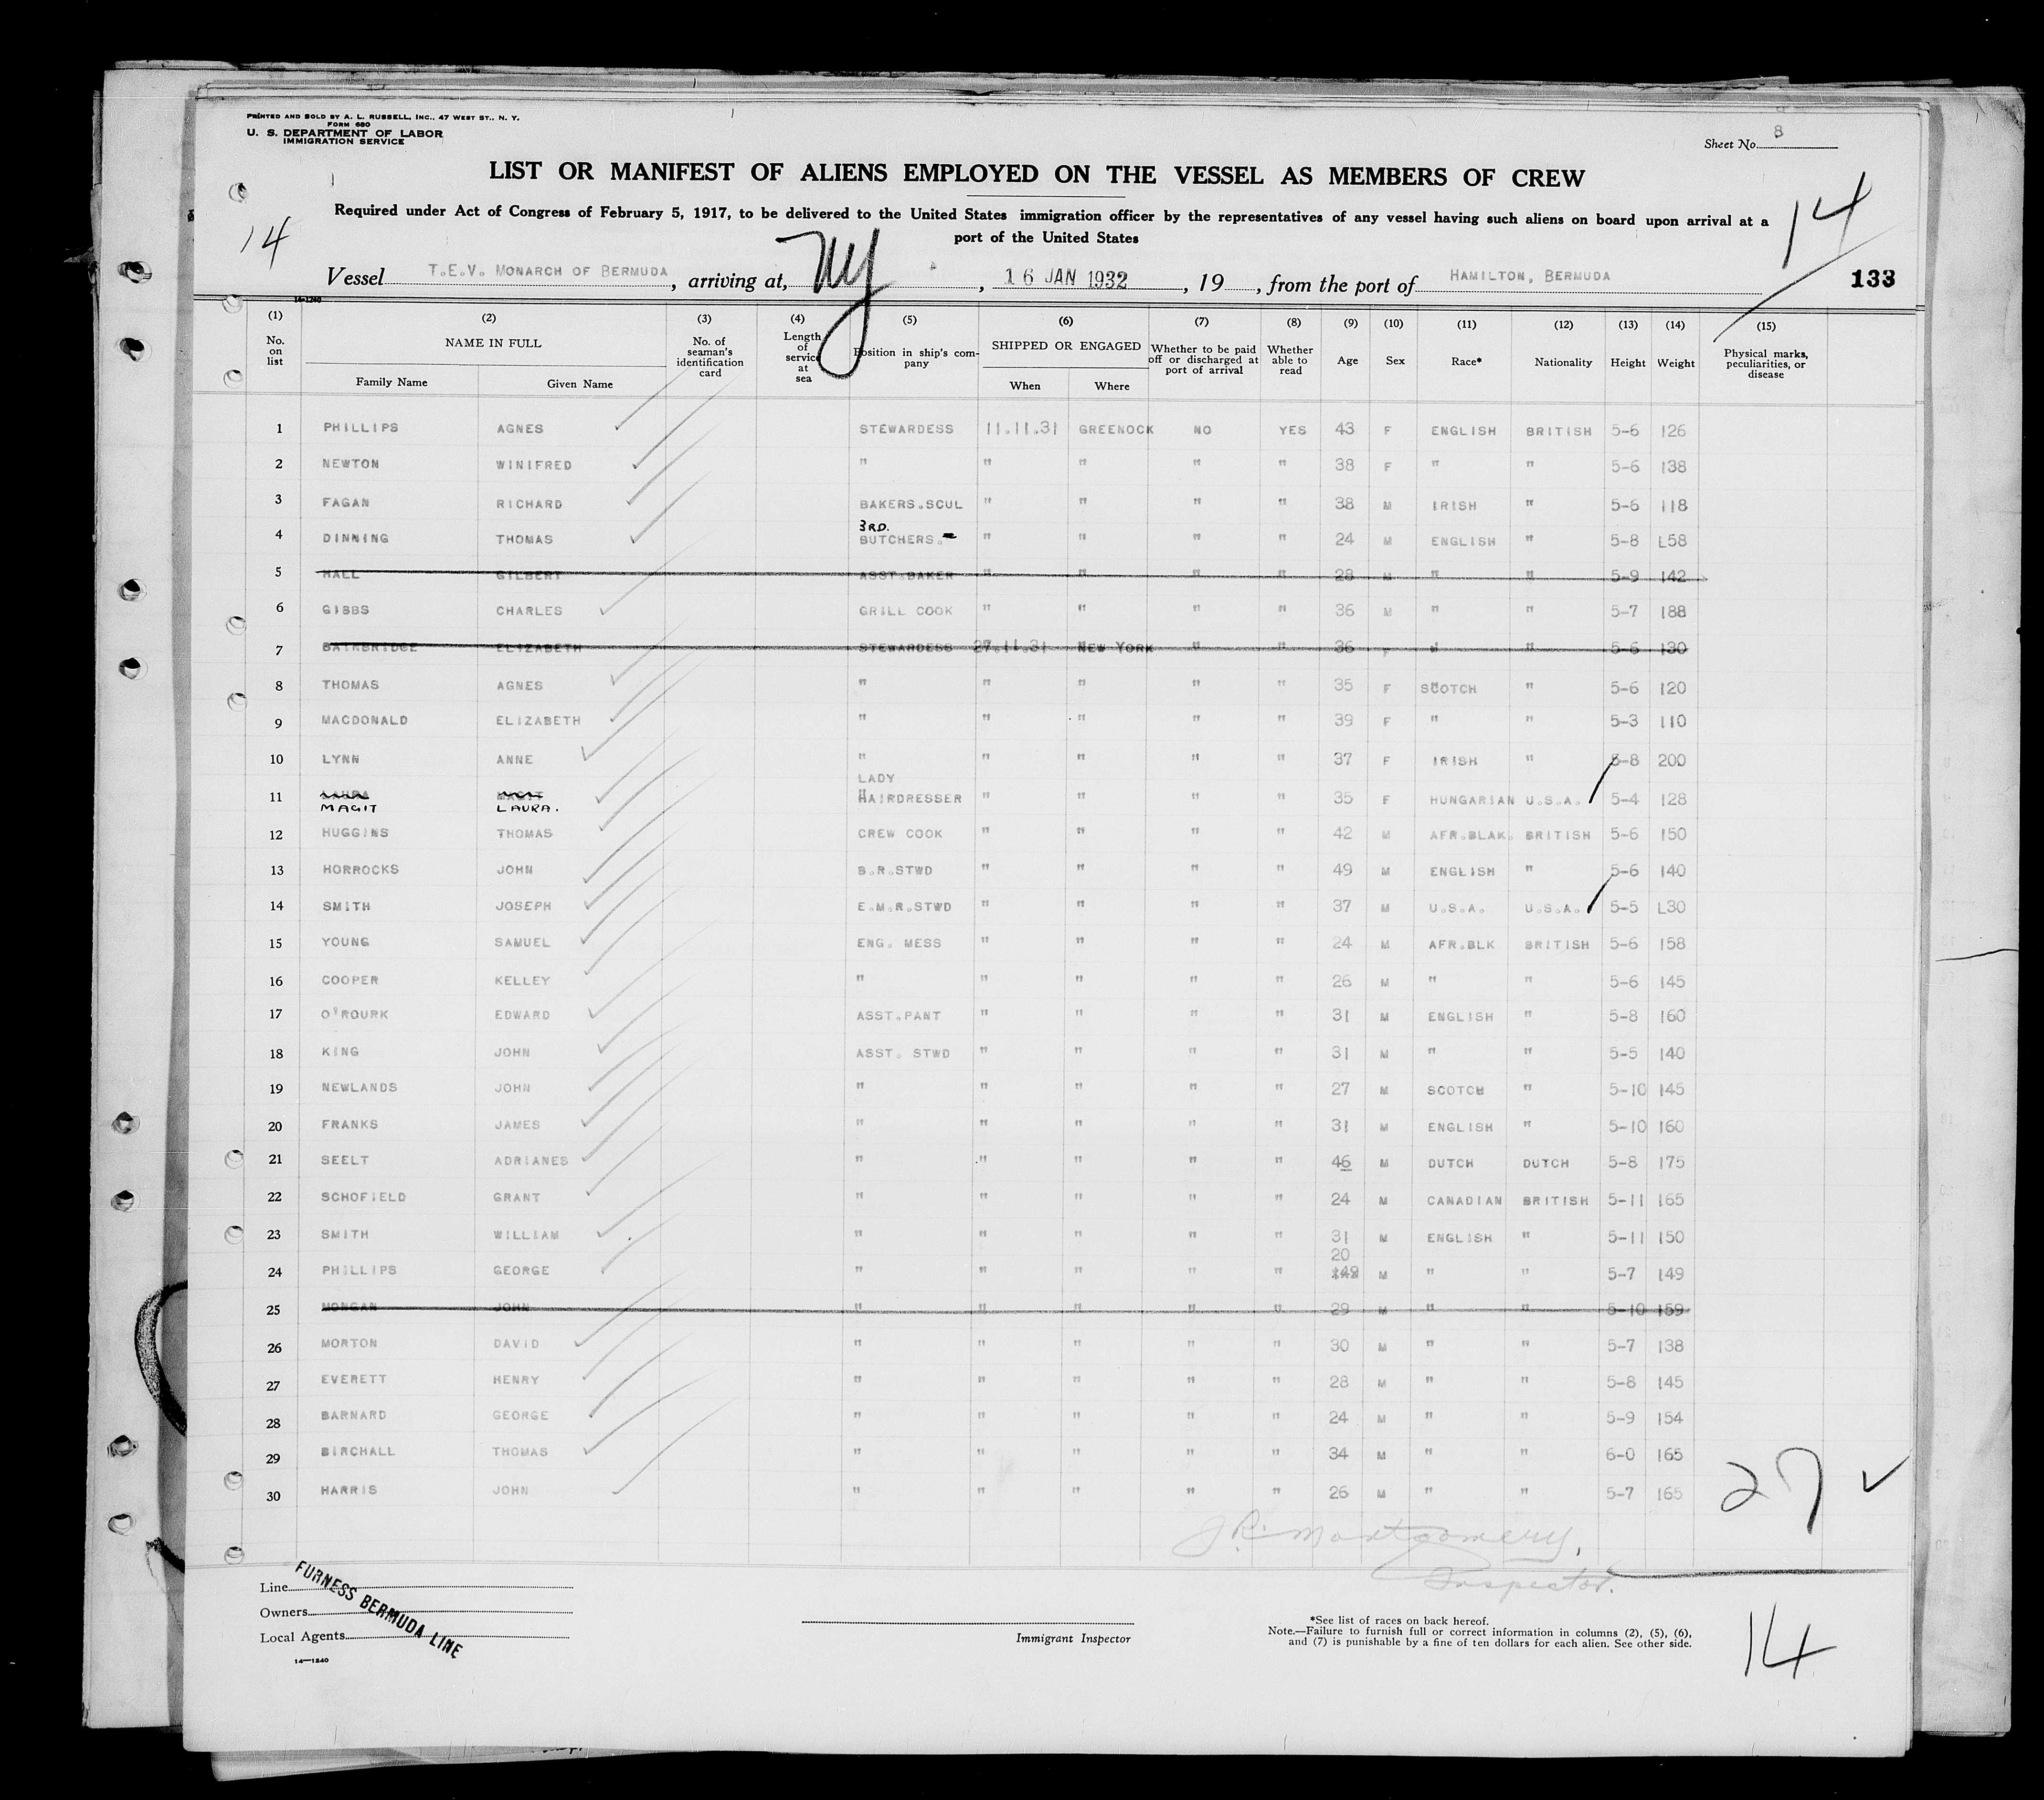 PRINTED AND SOLD BY A. L. RUSSELL, INC., 47 WEST ST., N. Y.
FORM 680
U. S. DEPARTMENT OF LABOR
IMMIGRATION SERVICE
Sheet No. 8
LIST OR MANIFEST OF ALIENS EMPLOYED ON THE VESSEL AS MEMBERS OF CREW
Required under Act of Congress of February 5, 1917, to be delivered to the United States immigration officer by the representatives of any vessel having such aliens on board upon arrival at a
port of the United States
14
14
Vessel T.E.V. MONARCH OF BERMUDA, arriving at, NY, 16 JAN 1932, 19, from the port of HAMILTON, BERMUDA
133
14-1240
(1) (2) (3) (4) (5) (6) (7) (8) (9) (10) (11) (12) (13) (14) (15)
No. on list NAME IN FULL Family Name Given Name No. of seaman's identification card Length of service at sea Position in ship's company SHIPPED OR ENGAGED When Where Whether to be paid off or discharged at port of arrival Whether able to read Age Sex Race* Nationality Height Weight Physical marks, peculiarities, or disease
1 PHILLIPS AGNES STEWARDESS 11.11.31 GREENOCK NO YES 43 F ENGLISH BRITISH 5-6 126
2 NEWTON WINIFRED " " " " " 38 F " " 5-6 138
3 FAGAN RICHARD BAKERS.SCUL " " " " 38 M IRISH " 5-6 118
4 DINNING THOMAS 3RD. BUTCHERS. " " " " 24 M ENGLISH " 5-8 L58
5 HALL GILBERT ASST.BAKER " " " " 28 M " " 5-9 142
6 GIBBS CHARLES GRILL COOK " " " " 36 M " " 5-7 188
7 BAINBRIDGE ELIZABETH STEWARDESS 27.11.31 NEW YORK " " 36 F " " 5-6 130
8 THOMAS AGNES " " " " " 35 F SCOTCH " 5-6 120
9 MACDONALD ELIZABETH " " " " " 39 F " " 5-3 110
10 LYNN ANNE " " " " " 37 F IRISH " 5-8 200
11 LAURA MAGIT MAGIT LAURA. LADY HAIRDRESSER " " " " 35 F HUNGARIAN U.S.A. 5-4 128
12 HUGGINS THOMAS CREW COOK " " " " 42 M AFR.BLAK. BRITISH 5-6 150
13 HORROCKS JOHN B.R.STWD " " " " 49 M ENGLISH " 5-6 140
14 SMITH JOSEPH E.M.R.STWD " " " " 37 M U.S.A. U.S.A. 5-5 L30
15 YOUNG SAMUEL ENG. MESS " " " " 24 M AFR.BLK BRITISH 5-6 158
16 COOPER KELLEY " " " " " 26 M " " 5-6 145
17 O'ROURK EDWARD ASST.PANT " " " " 31 M ENGLISH " 5-8 160
18 KING JOHN ASST. STWD " " " " 31 M " " 5-5 140
19 NEWLANDS JOHN " " " " " 27 M SCOTCH " 5-10 145
20 FRANKS JAMES " " " " " 31 M ENGLISH " 5-10 160
21 SEELT ADRIANES " " " " " 46 M DUTCH DUTCH 5-8 175
22 SCHOFIELD GRANT " " " " " 24 M CANADIAN BRITISH 5-11 165
23 SMITH WILLIAM " " " " " 31 M ENGLISH " 5-11 150
24 PHILLIPS GEORGE " " " " " 20 M " " 5-7 149
25 JOHN " " " " " 29 M " " 5-10 159
26 MORTON DAVID " " " " " 30 M " " 5-7 138
27 EVERETT HENRY " " " " " 28 M " " 5-8 145
28 BARNARD GEORGE " " " " " 24 M " " 5-9 154
29 BIRCHALL THOMAS " " " " " 34 M " " 6-0 165
30 HARRIS JOHN " " " " " 26 M " " 5-7 165
27 ✓
J.R. Montgomery,
Inspector.
Line
Owners
Local Agents
FURNESS BERMUDA LINE
14—1240
Immigrant Inspector
*See list of races on back hereof.
Note.—Failure to furnish full or correct information in columns (2), (5), (6),
and (7) is punishable by a fine of ten dollars for each alien. See other side.
14